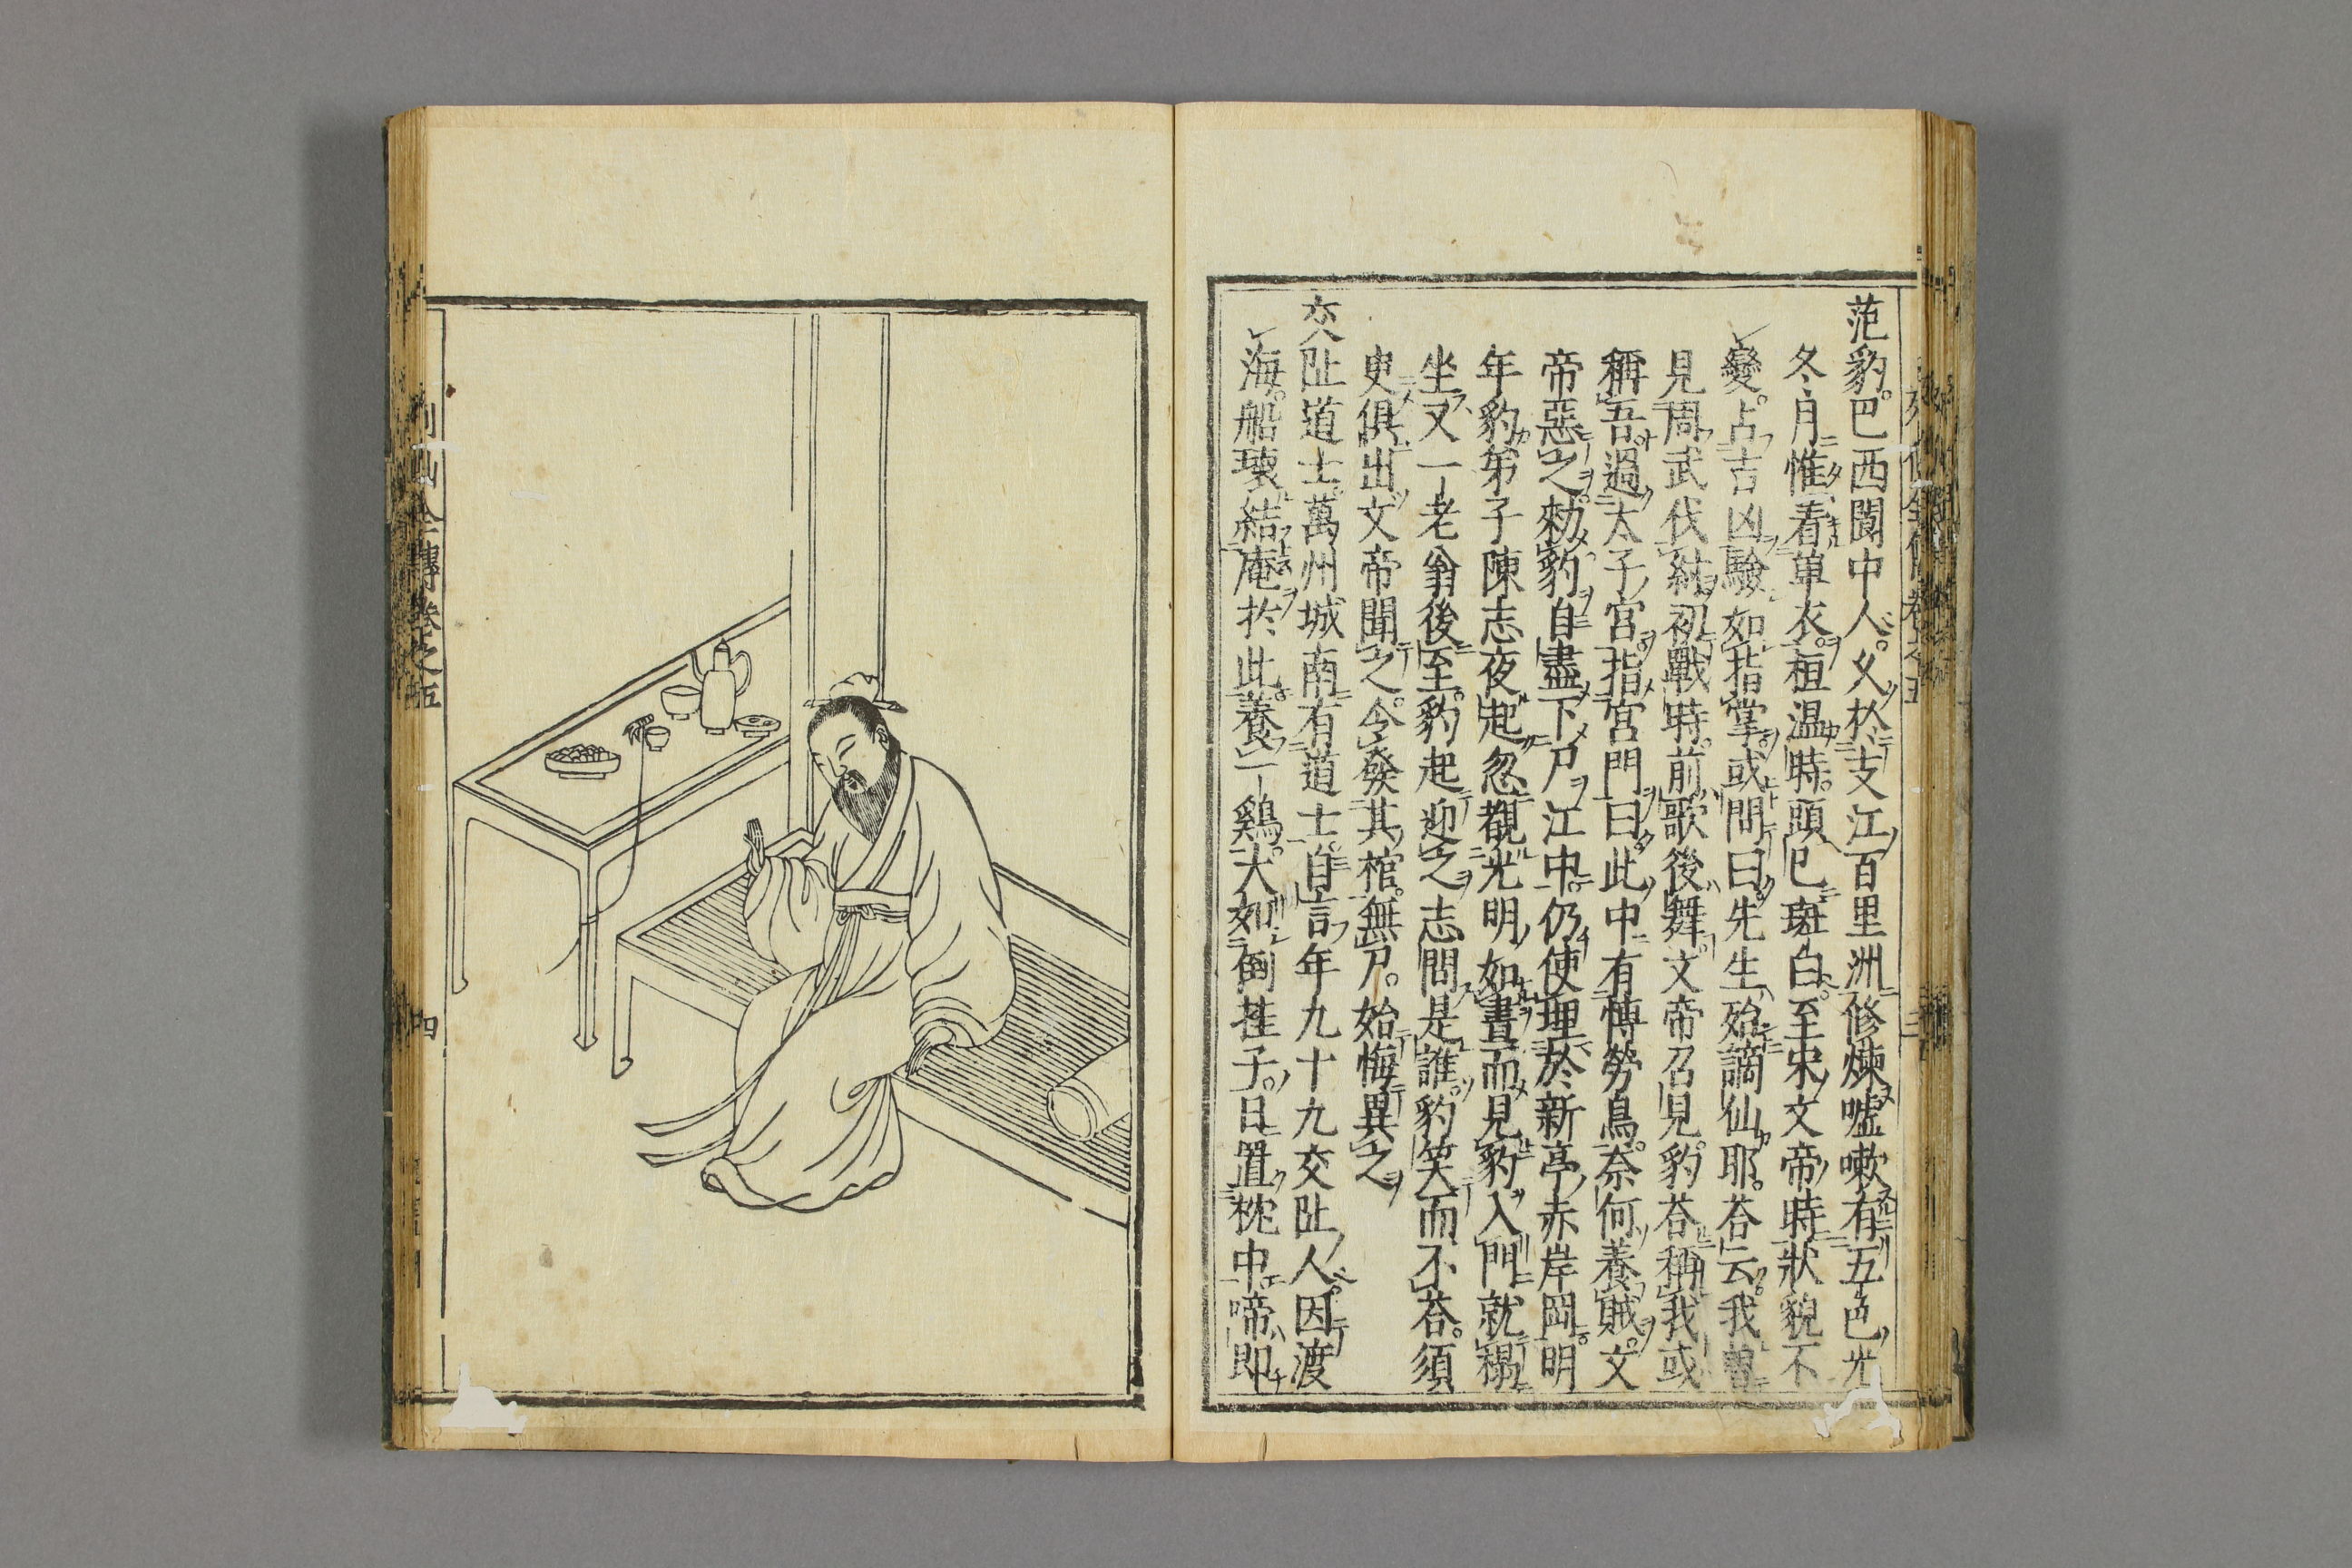 范豹。巴西閬中人。久於支江百里洲修煉噓嗽有五色光
冬月惟看單衣。桓温時。頭已斑白。至宋文帝時狀貌不
變。占吉凶驗如指掌。或問曰。先生殆謫仙耶。荅云。我
見周武伐紂初戰時。前歌後舞。文帝召見。豹荅稱我或
稱吾。過太子宮。指宮門曰。此中有愽勞鳥。奈何養賊。文
帝惡之。勑豹自盡。下尸江中。仍使理於新亭赤岸岡。明
年豹弟子陳志夜起忽覩光明如晝。而見豹入門就榻
坐又一老翁後至。豹起迎之志問是誰。豹笑而不荅。須
臾俱出文帝聞之。令發其棺。無尸。始悔異之
交趾道士。萬州城南有道士。自言年九十九交趾人。因渡
海。船壞結庵於此。養一鷄。大如倒挂子。日置枕中。啼即
列仙全傳卷之五
四